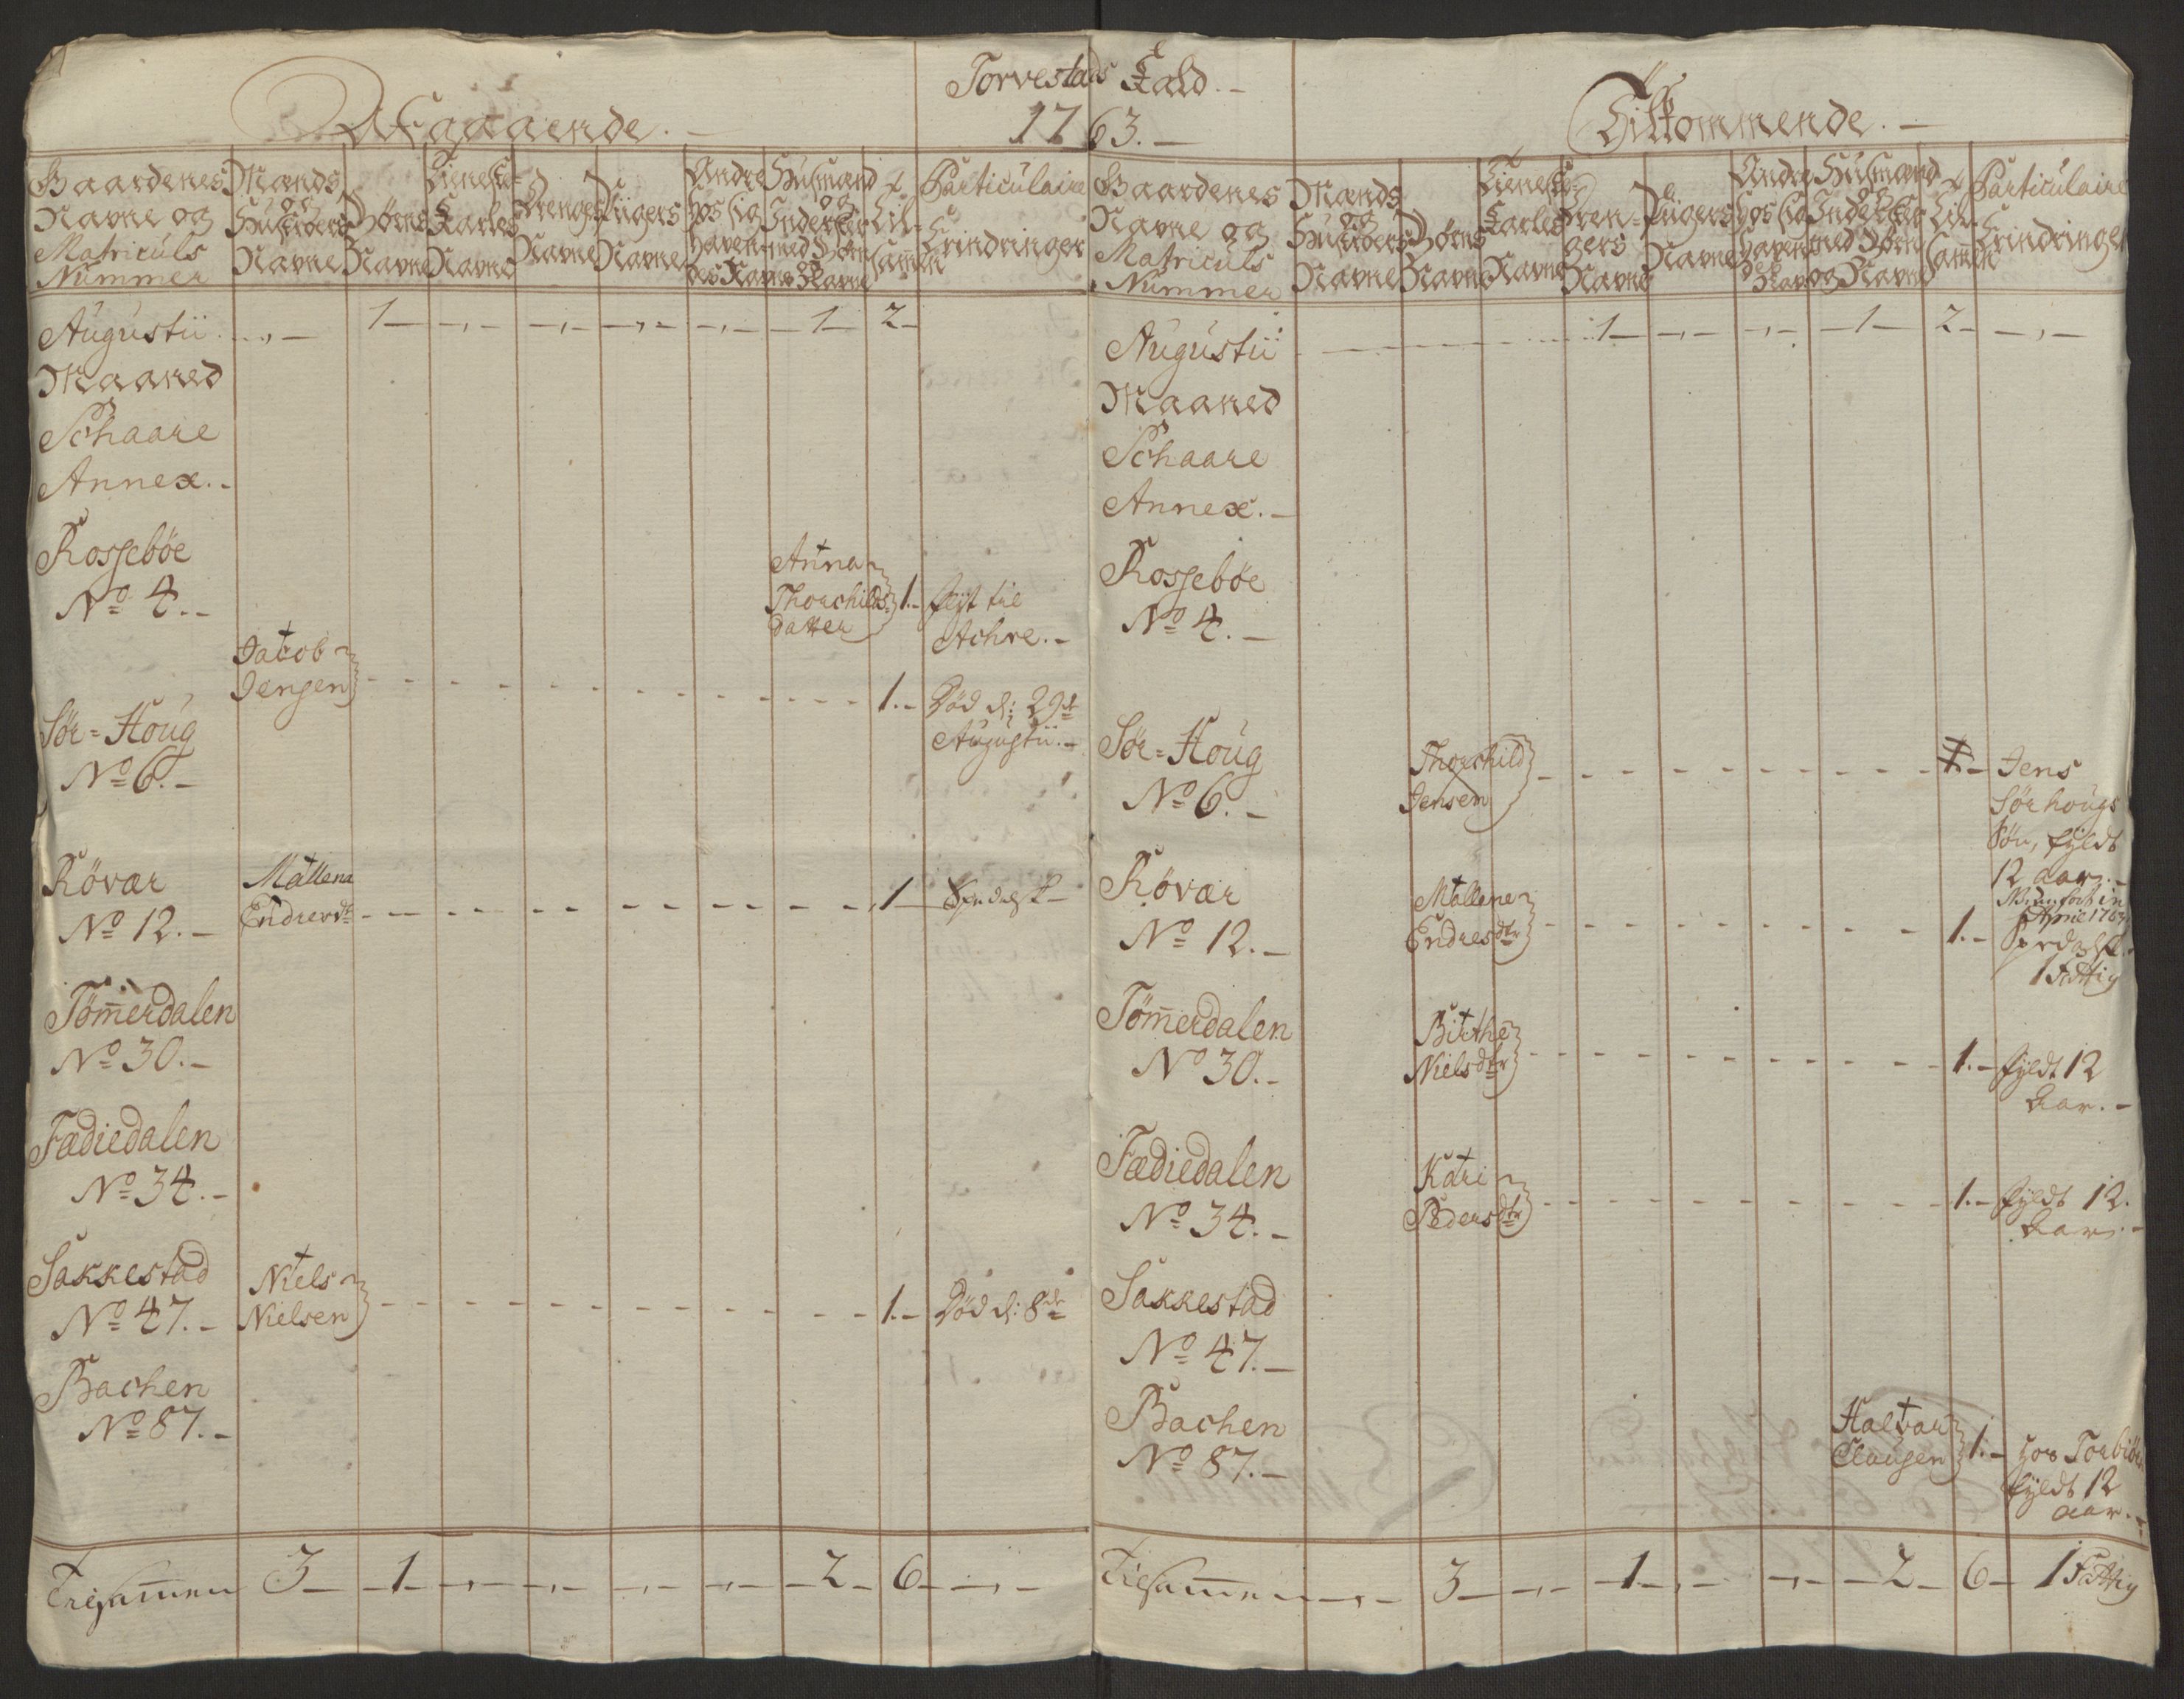 Torvestads Kald.-
1763.-
Afgaaende.-
Gaardenes Navne og Matriculs Nummer
Mands og Husjbers Navne
Børns Navne
Tieneste Karles Navne
Drenges Navne
Piigers Navne
Andre hos sig havendes Navne
Husmænd og Inderster med Børn og Navne
Tilsammen
Particulaire Erindringer
Augustii -,- 1- -,- -,- -,- -,- -1- 2-
Maaned
Schaare
Annex.-
Rossebøe
No 4.-
Anna
Thorchilds
datter 1.- fløt til
Achre.-
Jacob
Jensen 1.- Død d: 29de
Augustii.-
Sør-Houg
No 6.-
Røvær
No 12.-
Mallena
Endresdr 1-
Tømerdalen
No 30.-
Fædiedalen
No 34.-
Sakkestad
No 47.-
Niels
Nielsen 1.- Død d: 8de
Bachen
No 87.-
Tilsammen 3- -1- -,- -,- -,- -,- -2- 6- -,-
Tilkommende.-
Gaardenes Navne og Matriculs Nummer
Mands og Navne
Børns Navne
Tieneste Karles Navne
Drengers Navne
Piigers Navne
Andre hos sig havendes Navne
Husmænd og Inderster med Børn og Navne
Tilsammen
Particulaire Erindringer
Augustii 1- -,- -,- -1- 2- -,-
Maaned
Schaare
Annex.-
Rossebøe
No 4.-
Sør-Houg
No 6.-
Thorchild
Jensen 1.- Jens
Sørhougs
Søn, fyldt
12 aar.-
April 1763
Røvær
No 12.-
Mallene
Endresdtr 1.-
1 Fattig
Tømerdalen
No 30.-
Birthe
Nielsdtr 1.- fyldt 12
Aar.-
Fædiedalen
No 34.-
Kari
Pedersdtr 1.- fyldt 12.
Aar.-
Sakkestad
No 47.-
Bachen
No 87.-
Halvar
Clausen 1.- hos Torbiør
fyldt 12
aar.-
Tilsammen -,- 3- -,- -1- -,- -,- -2- 6- 1 Fattig